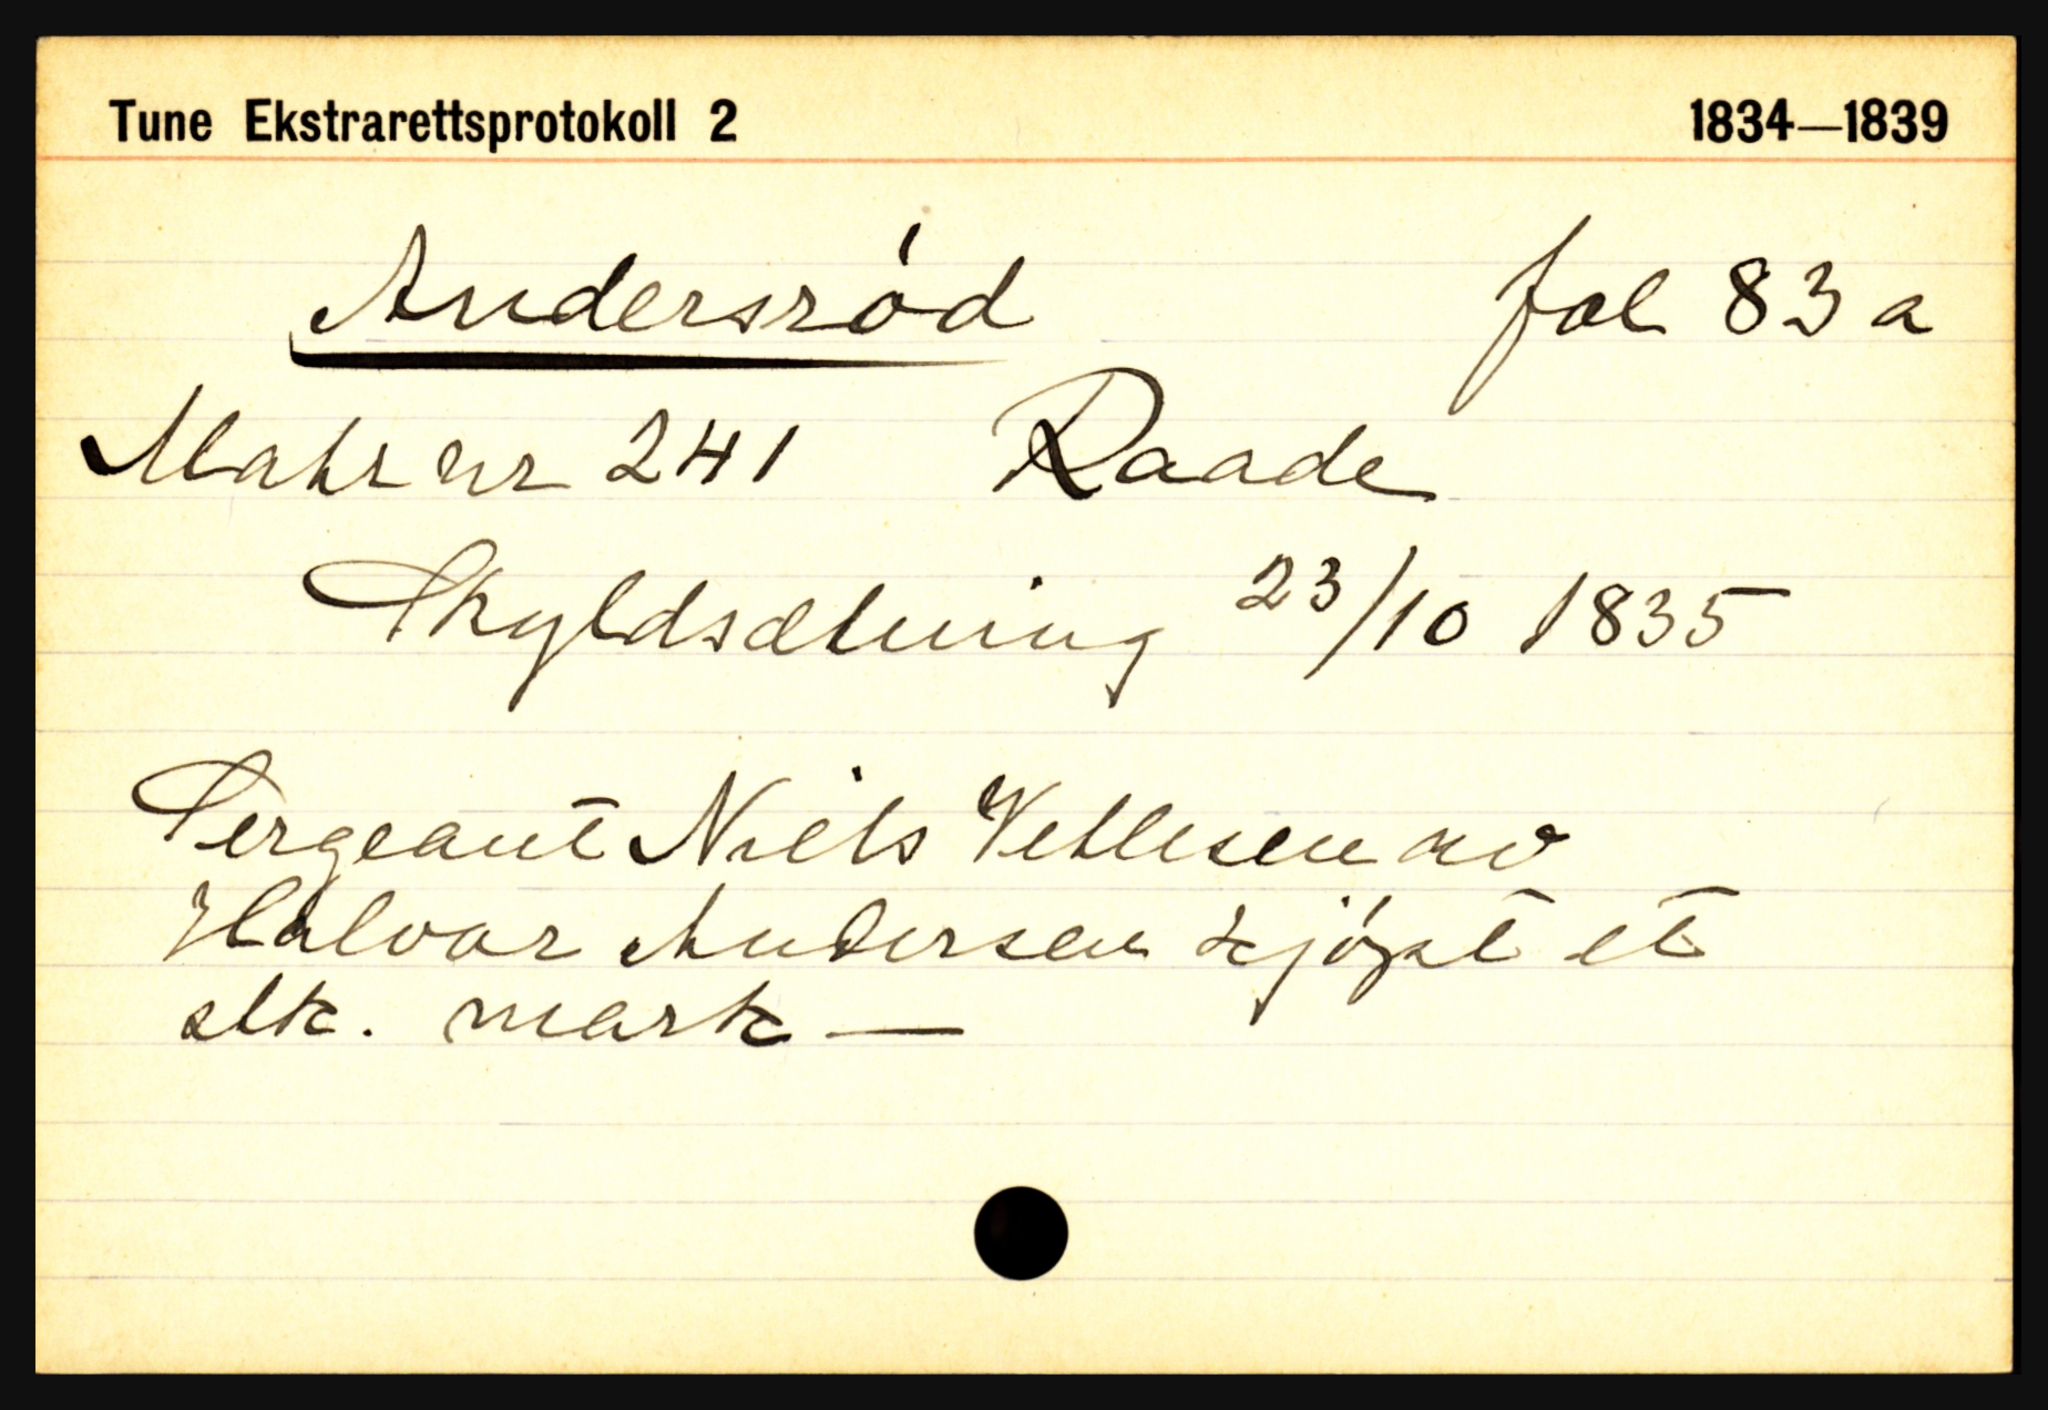 Tune Ekstrarettsprotokoll 2 1834—1839
Andersród fol 83 a
Matr nr 241 Raade
Skyldsætning 23/10 1835
Sergeant Niels Vetlesen av
Halvor Andersen kjópt et
stk. mark —